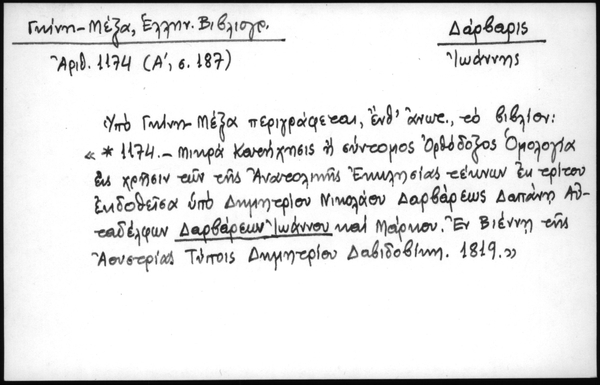 Γκίνη-Μέξα, Ἑλλην. Βιβλιογρ. Δάρβαρις
Ἀριθ. 1174 (Α', σ. 187) Ἰωάννης
Ὑπὸ Γκίνη-Μέξα περιγράφεται, ἔνθ' ἄνωτ., τὸ βιβλίον:
« * 1174.- Μικρὰ Κατήχησις ἢ σύντομος Ὀρθόδοξος Ὁμολογία
εἰς χρῆσιν τῶν τῆς Ἀνατολικῆς Ἐκκλησίας τέκνων ἐκ τρίτου
ἐκδοθεῖσα ὑπὸ Δημητρίου Νικολάου Δαρβάρεως Δαπάνῃ Αὐ-
ταδέλφων Δαρβάρεων Ἰωάννου καὶ Μάρκου. Ἐν Βιέννῃ τῆς
Ἀουστρίας Τύποις Δημητρίου Δαβιδοβίκη. 1819.»